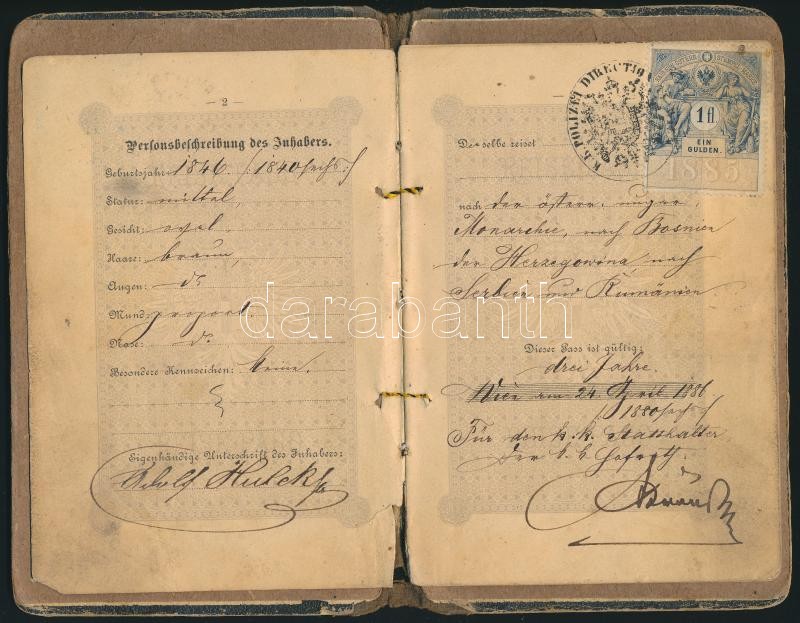 - 2 -
Personsbeschreibung des Inhabers.
Geburtsjahr: 1846. /: 1840 sechs :/
Statur: mittel,
Gesicht: oval,
Haare: braun,
Augen: do
Mund: proport.
Nase: do.
Besondere Kennzeichen: keine.
Eigenhändige Unterschrift des Inhabers:
Adolf
K. k. POLIZEI DIRECTIO
1 fl
EIN
GULDEN.
1885
Derselbe reiset
nach der österr. ungar.
Monarchie, nach Bosnien
der Herzegowina, nach
Serbien und Rumänien
Dieser Pass ist gültig:
drei Jahre.
Wien am 24 April 1886
/: 1880 sechs :/
Für den k. k. Statthalter
Der k. k. Hofrath.
darabanth